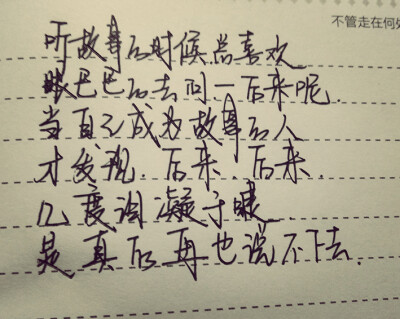 不管走在何处
听故事的时候总喜欢
眼巴巴的去问一后来呢.
当自己成为故事的人
才发现.后来.后来.
几度词凝于喉
是真的再也说不下去.